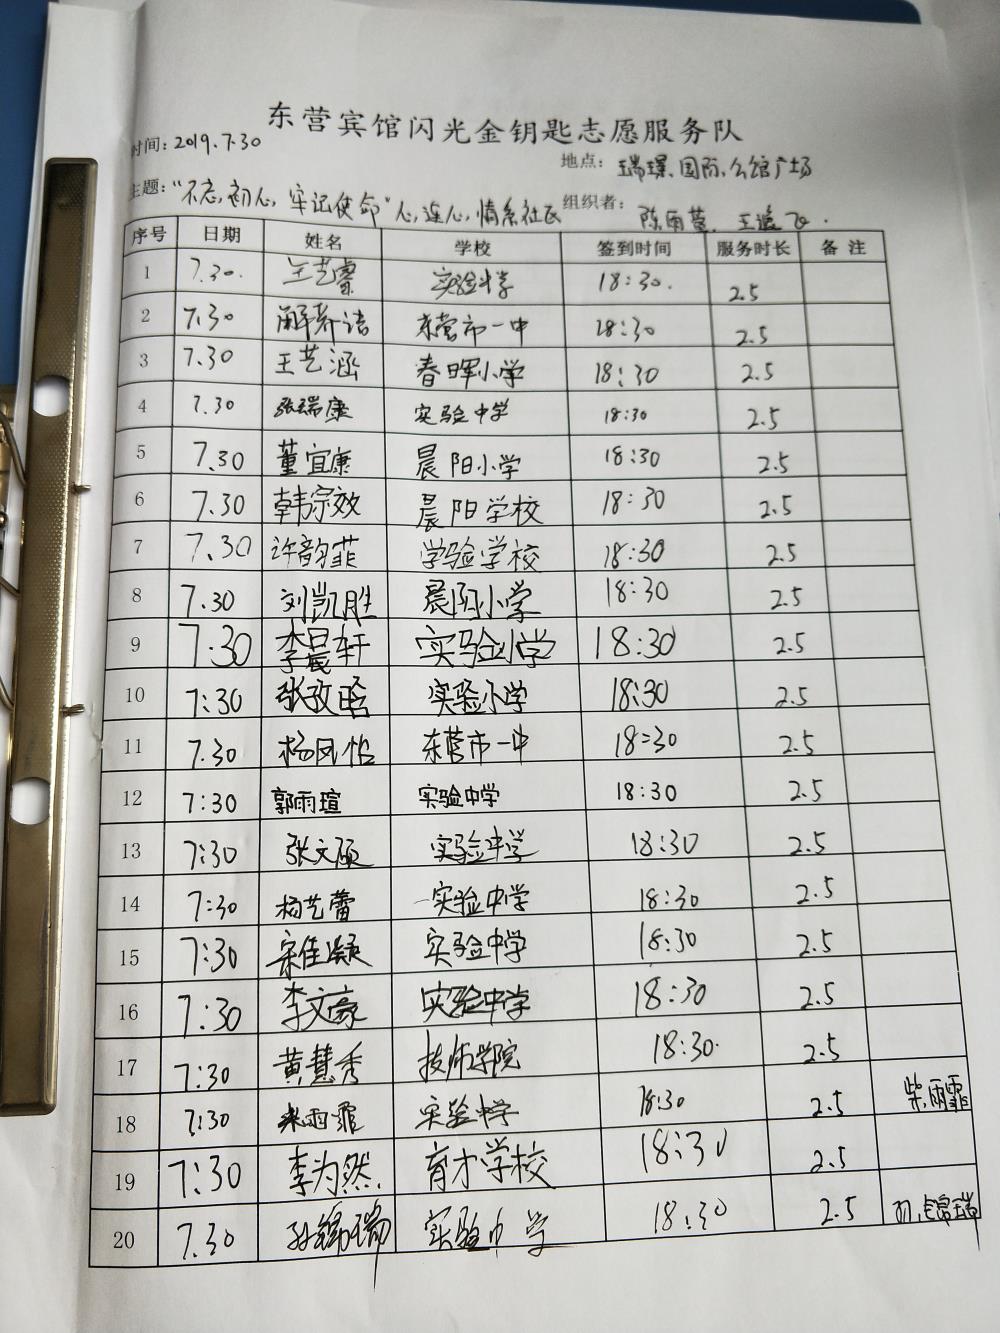 东营宾馆闪光金钥匙志愿服务队
时间: 2019.7.30
地点: 瑞璟国际公馆广场
主题: "不忘初心,牢记使命"心连心,情系社区
组织者: 陈雨萱、王
序号 日期 姓名 学校 签到时间 服务时长 备 注
1 7.30. 王艺睿 实验中学 18:30. 2.5
2 7.30 解 语 东营市一中 18:30 2.5
3 7.30 王艺涵 春晖小学 18:30 2.5
4 7.30 张瑞康 实验中学 18:30 2.5
5 7.30 董宜康 晨阳小学 18:30 2.5
6 7.30 韩宗效 晨阳学校 18:30 2.5
7 7.30 许韵菲 学验学校 18:30 2.5
8 7.30 刘凯胜 晨阳小学 18:30 2.5
9 7.30 李晨轩 实验小学 18:30 2.5
10 7:30 张孜晗 实验小学 18:30 2.5
11 7.30 杨凤怡 东营市一中 18:30 2.5
12 7:30 郭雨瑄 实验中学 18:30 2.5
13 7:30 张文硕 实验中学 18:30 2.5
14 7:30 杨艺蕾 实验中学 18:30 2.5
15 7:30 宋佳凝 实验中学 18:30 2.5
16 7:30 李文豪 实验中学 18:30 2.5
17 7:30 黄慧秀 技师学院 18:30. 2.5
18 7:30 柴雨霏 实验中学 18:30 2.5 柴雨霏
19 7:30 李为然. 育才学校 18:30 2.5
20 7.30 孙锦瑞 实验中学 18:30 2.5 孙锦瑞